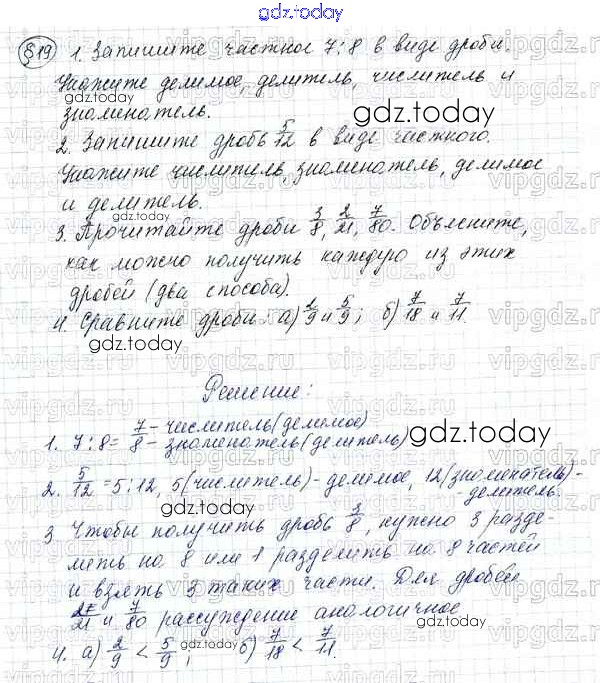 gdz.today
§19 1. Запишите частное 7:8 в виде дроби.
Укажите делимое, делитель, числитель и
знаменатель.
2. Запишите дробь 5/12 в виде частного.
Укажите числитель, знаменатель, делимое
и делитель.
3. Прочитайте дроби 3/8, 2/21, 7/80. Объясните,
как можно получить каждую из этих
дробей (два способа).
4. Сравните дроби. а) 2/9 и 5/9; б) 7/18 и 7/11.
Решение:
1. 7:8 = 7/8 – числитель (делимое) – знаменатель (делитель)
2. 5/12 = 5:12, 5 (числитель) - делимое, 12 (знаменатель) -
- делитель.
3 Чтобы получить дробь 3/8, нужно 3 разде-
лить на 8 или 1 разделить на 8 частей
и взять 3 таких части. Для дробей
2/21 и 7/80 рассуждение аналогичное
4. а) 2/9 < 5/9; б) 7/18 < 7/11.
gdz.today
gdz.today
gdz.today
gdz.today
gdz.today
gdz.today
gdz.today
vipgdz.ru